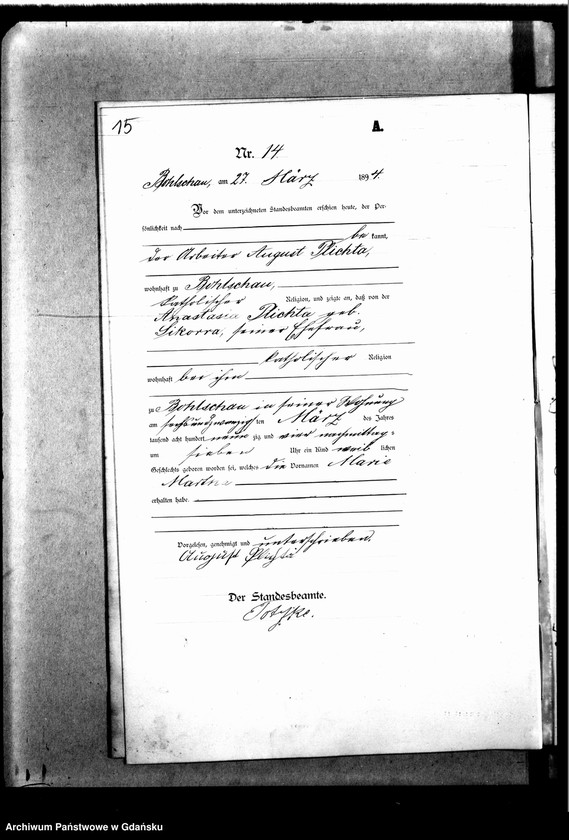 15
A.
Nr. 14
Bohlschau, am 27. März 1894.
Vor dem unterzeichneten Standesbeamten erschien heute, der Per-
sönlichkeit nach
be kannt,
der Arbeiter August Plichta,
wohnhaft zu Bohlschau,
katholischer Religion, und zeigte an, daß von der
Anastasia Plichta geb.
Sikorra, seiner Ehefrau,
katholischer Religion
wohnhaft bei ihm
zu Bohlschau in seiner Wohnung
am sechsundzwanzig ten März des Jahres
tausend acht hundert neun zig und vier nachmittags
um sieben Uhr ein Kind weib lichen
Geschlechts geboren worden sei, welches die Vornamen Marie
Martha
erhalten habe.
Vorgelesen, genehmigt und unterschrieben.
August Plichta
Der Standesbeamte.
Archiwum Państwowe w Gdańsku